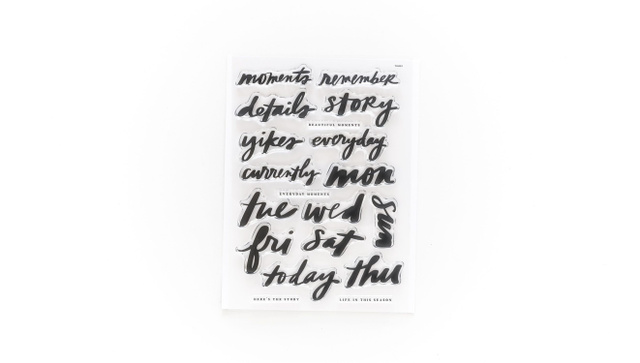 moments remember
details story
BEAUTIFUL MOMENTS
yikes everyday
currently mon
EVERYDAY MOMENTS
tue wed sun
fri sat
today thu
HERE'S THE STORY LIFE IN THIS SEASON